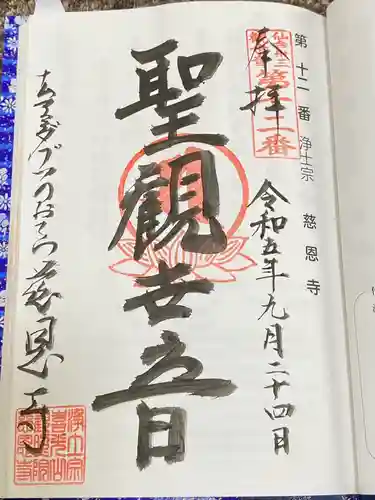 第十二番 浄土宗 慈恩寺
第十二番
奉拝
令和五年九月二十四日
聖観世音
のおてら 慈恩寺
浄土宗